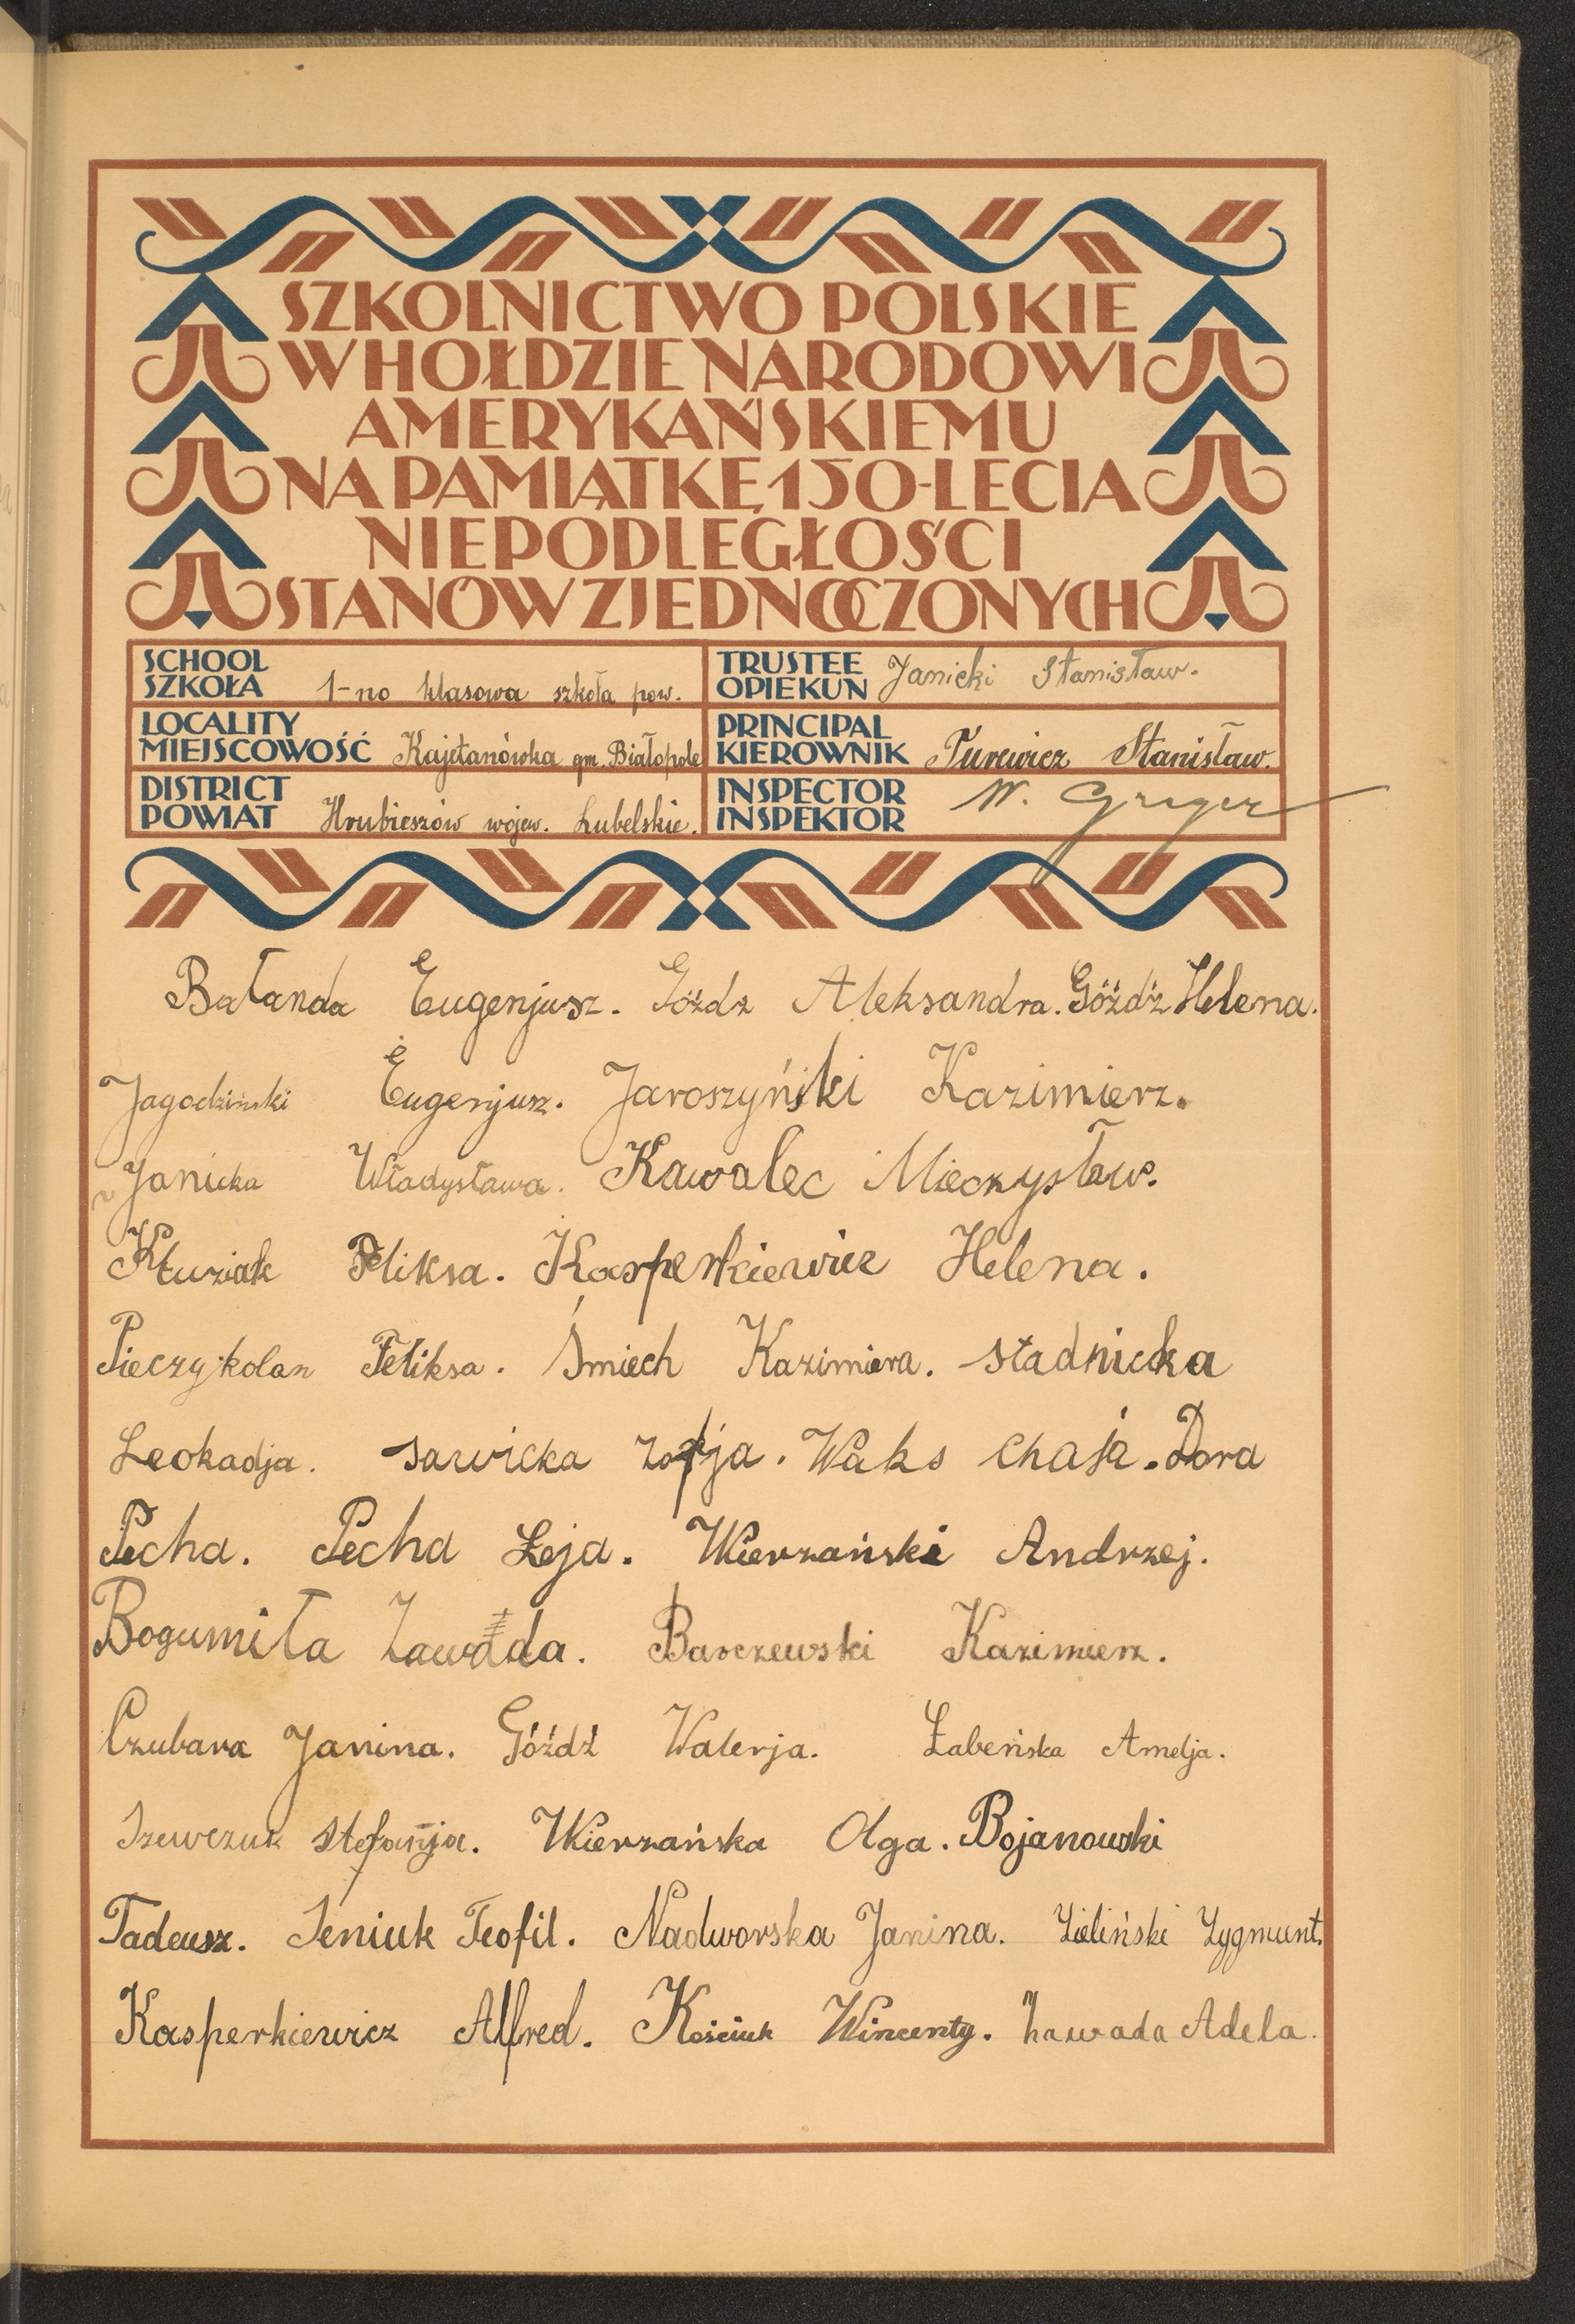 SZKOLNICTWO POLSKIE
W HOŁDZIE NARODOWI
AMERYKAŃSKIEMU
NA PAMIĄTKĘ 150-LECIA
NIEPODLEGŁOŚCI
STANÓW ZJEDNOCZONYCH
SCHOOL
SZKOŁA 1-no klasowa szkoła pow.
TRUSTEE
OPIEKUN Janicki Stanisław.
LOCALITY
MIEJSCOWOŚĆ Kajetanówka gm. Białopole
PRINCIPAL
KIEROWNIK Turewicz Stanisław.
DISTRICT
POWIAT Hrubieszów wojew. Lubelskie.
INSPECTOR
INSPEKTOR W. Greger
Bałanda Eugenjusz. Góźdz Aleksandra. Góźdź Helena.
Jagodziński Eugenjusz. Jaroszyński Kazimierz.
Janicka Władysława. Kawalec Mieczysław.
Kłuziak Feliksa. Kasperkiewicz Helena.
Pieczykolan Feliksa. Śmiech Kazimiera. Stadnicka
Leokadja. Sawicka Zofja. Waks Chaja. Dora
Pecha. Pecha Leja. Wierzański Andrzej.
Bogumiła Zawada. Barczewski Kazimierz.
Czubara Janina. Góźdź Walerja. Łabeńska Amelja.
Szewczuk Stefanja. Wierzańska Olga. Bojanowski
Tadeusz. Seniuk Teofil. Nadworska Janina. Zieliński Zygmunt.
Kasperkiewicz Alfred. Kościuk Wincenty. Zawada Adela.